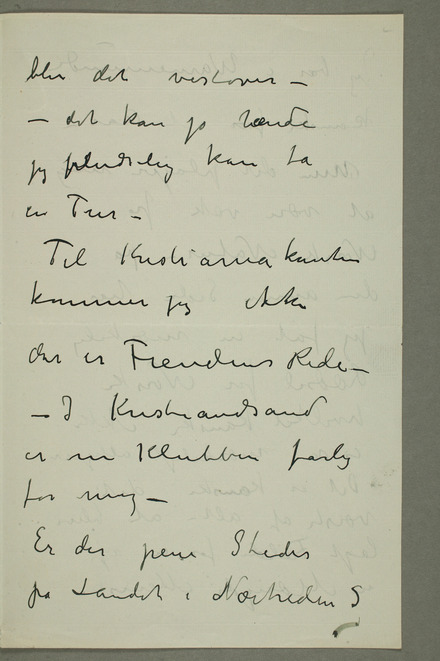 blir det vestover –
– det kan jo hænde
jeg pludselig kan ta
en Tur –
Til Kristianiakanten
kommer jeg ikke
der er Fiendens Rede –
– I Kristiandsand
er nu Klubben farlig
for meg –
Er der pene Steder
på Landet i Nærheden S